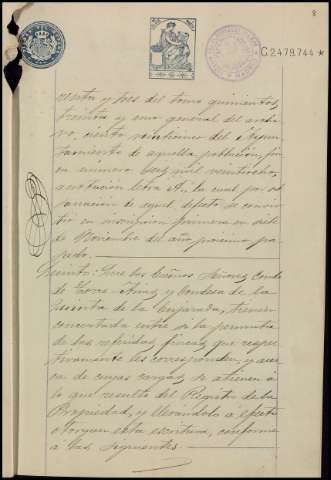 8
C.2479,744 *
cuenta y tres del tomo quinientos
treinta y uno general del archi-
vo, ciento veintinueve del Ayun-
tamiento de aquella población, fin-
ca número tres mil veintiocho,
anotación letra A, la cual por sub-
sanación de aquel defecto se convir-
tió en inscripción primera en siete
de Noviembre del año próximo pa-
sado.
Quinto: Que los Excmos. Señores Conde
de Torre Arias y Condesa de la
Quinta de la Enjarada, tienen
concertada entre sí la permuta
de las referidas fincas que respec-
tivamente les corresponden, y acer-
ca de cuyas cargas se atienen á
lo que resulte del Registro de la
Propiedad, y llevándola á efecto
otorgan esta escritura, conforme
á las siguientes